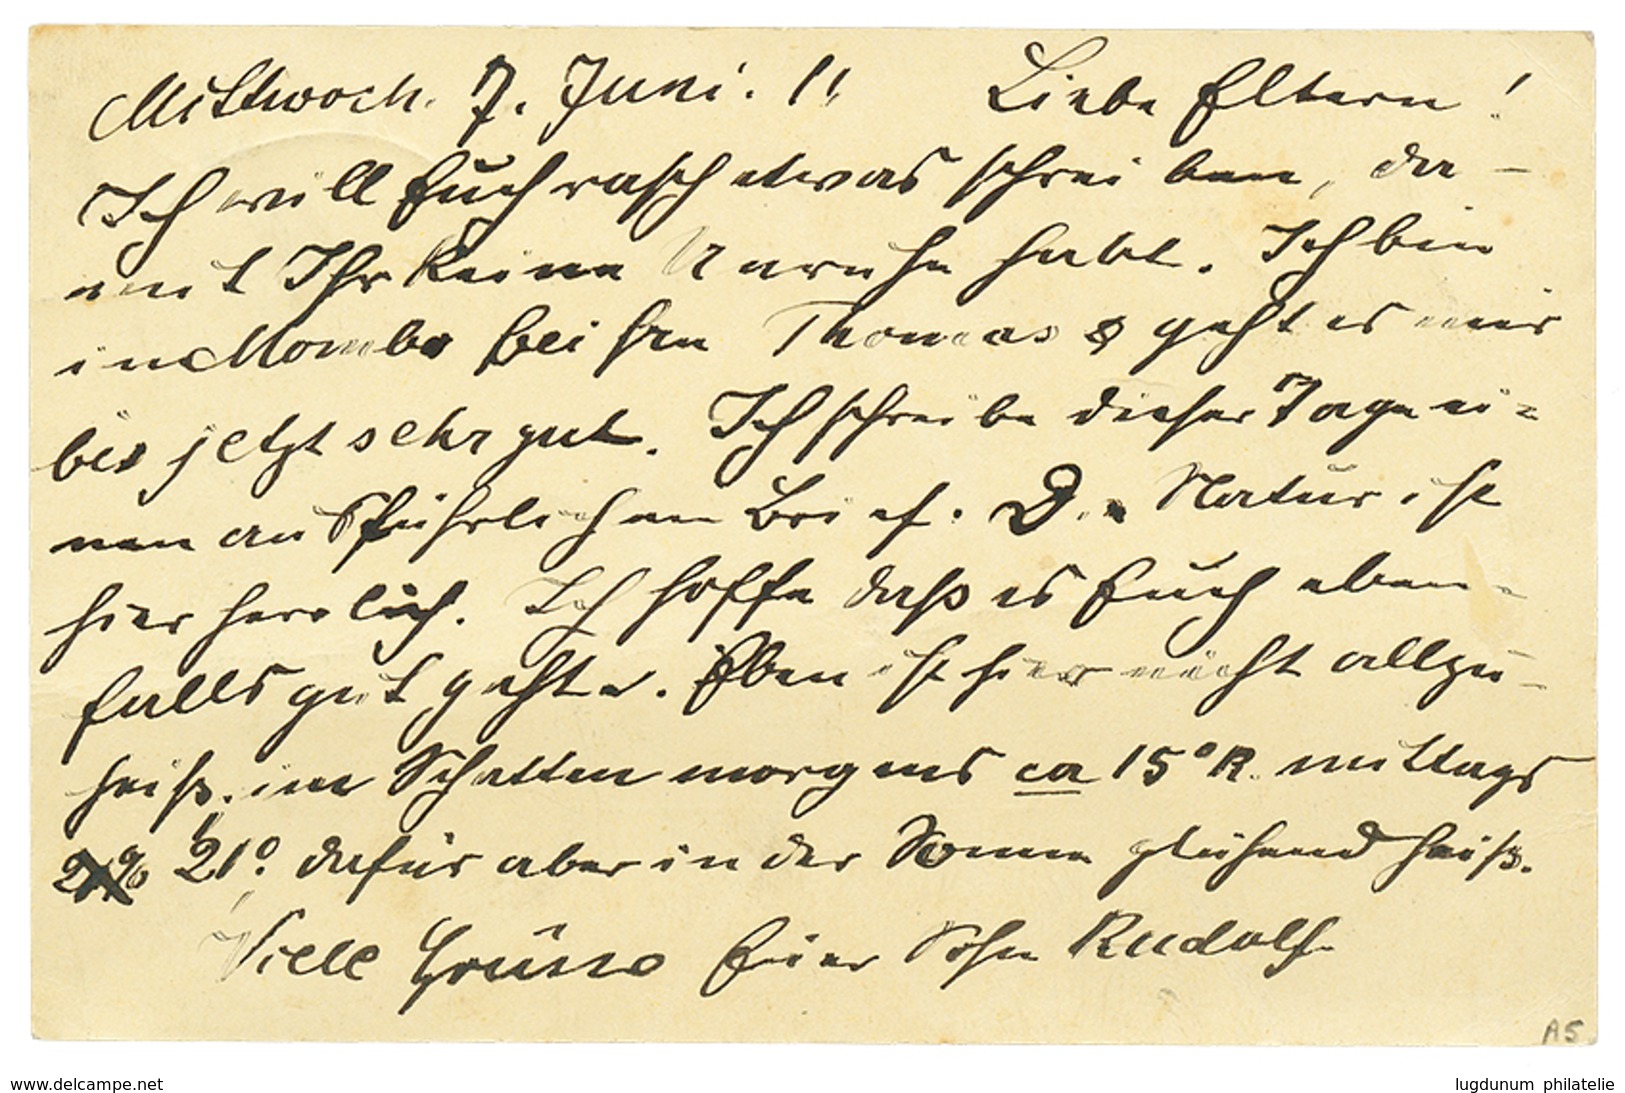 Mittwoch. 7. Juni. 11 Liebe Eltern!
Ich will Euch rasch etwas schreiben, da-
mit Ihr keine Unruhe habt. Ich bin
in Mombo bei Hrn Thomas & geht es mir
bis jetzt sehr gut. Ich schreibe dieser Tage ei-
nen ausführlichen Brief. D. Natur ist
hier herrlich. Ich hoffe daß es Euch eben-
falls gut geht. Eben ist hier nicht allzu-
heiß. im Schatten morgens ca 15° R. mittags
21°. dafür aber in der Sonne glühend heiß.
Viele Grüsse Euer Sohn Rudolf
A5
www.delcampe.net
lugdunum philatelie